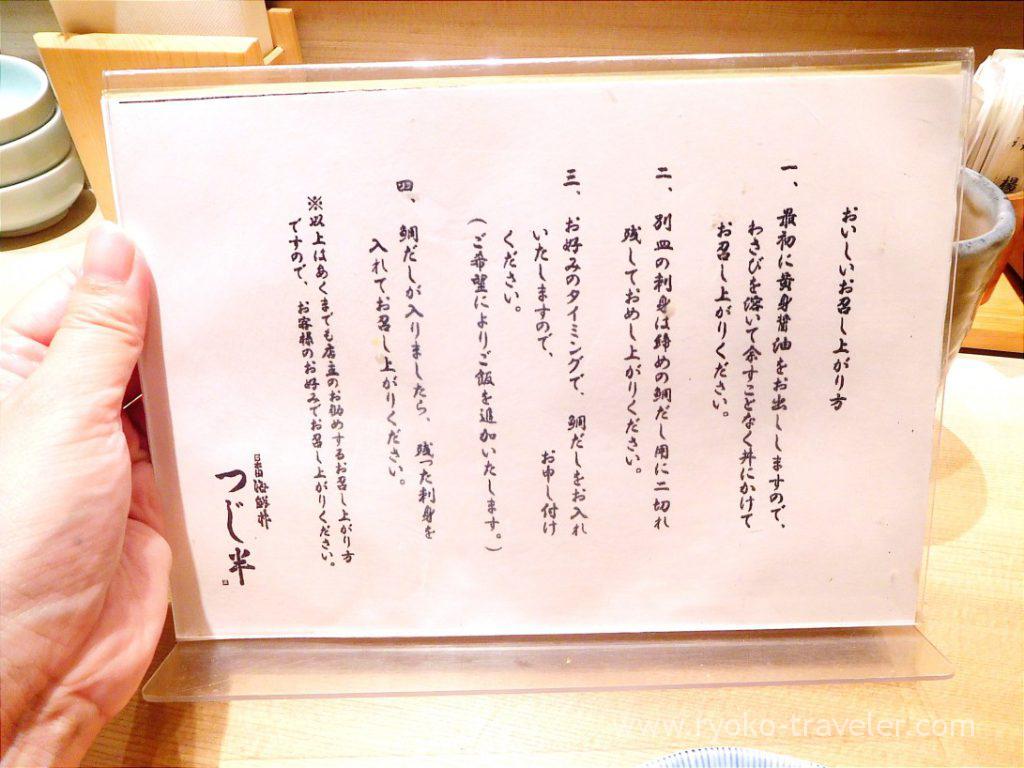 おいしいお召し上がり方
一、最初に黄身醤油をお出ししますので、
わさびを溶いて余すことなく丼にかけて
お召し上がりください。
二、別皿の刺身は締めの鯛だし用に二切れ
残しておめし上がりください。
三、お好みのタイミングで、鯛だしをお入れ
いたしますので、お申し付け
ください。
(ご希望によりご飯を追加いたします。)
四、鯛だしが入りましたら、残った刺身を
入れてお召し上がりください。
※以上はあくまでも店主のお勧めするお召し上がり方
ですので、お客様のお好みでお召し上がりください。
日本橋海鮮丼
つじ半
www.ryoko-traveler.com